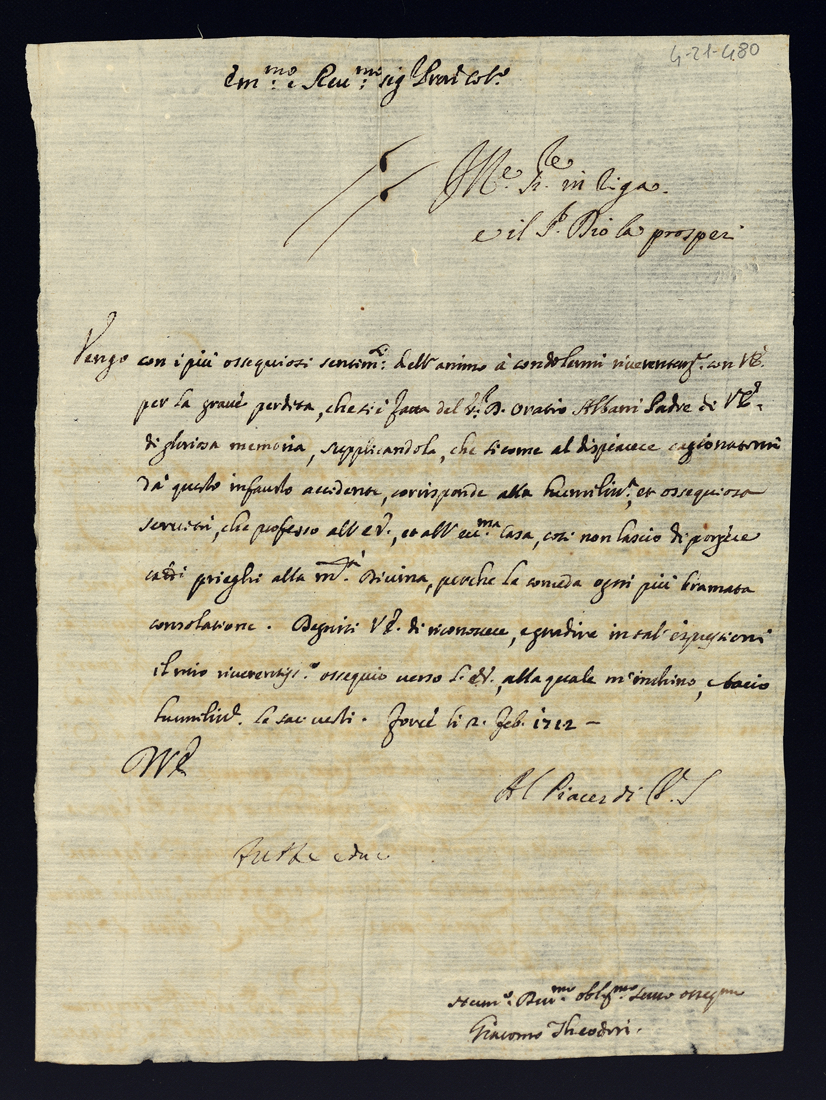 4-21-480
Em.mo e Reu.mo sig.
Vengo con i più ossequiosi sentim.ti dell'animo à condolermi riuerentem.te con VE.
per la graue perdita, che si è fatta del D. Oratio Albani Padre di VE.
di gloriosa memoria, supplicandola, che sicome al dispiacere cagionatomi
da questo infausto accidente, corrisponde alla humiliss.ma, et ossequiosa
seruitù, che professo all'EV., et all'ecc.ma Casa, cosi non lascio di porgere
caldi prieghi alla M.tà Diuina, perche la conceda ogni più bramata
consolatione. Degnisi VE. di riconoscere, e gradire in tal' espressioni
il mio riuerentiss.o ossequio uerso l'EV., alla quale m'inchino, e bacio
humilm.te le sac. uesti. Force li 12. Feb. 1712 –
VE
Al Piacer di
tutte e due
Hum.o Deu.mo oblig.mo seruo osseq.mo
Giacomo Theodori.